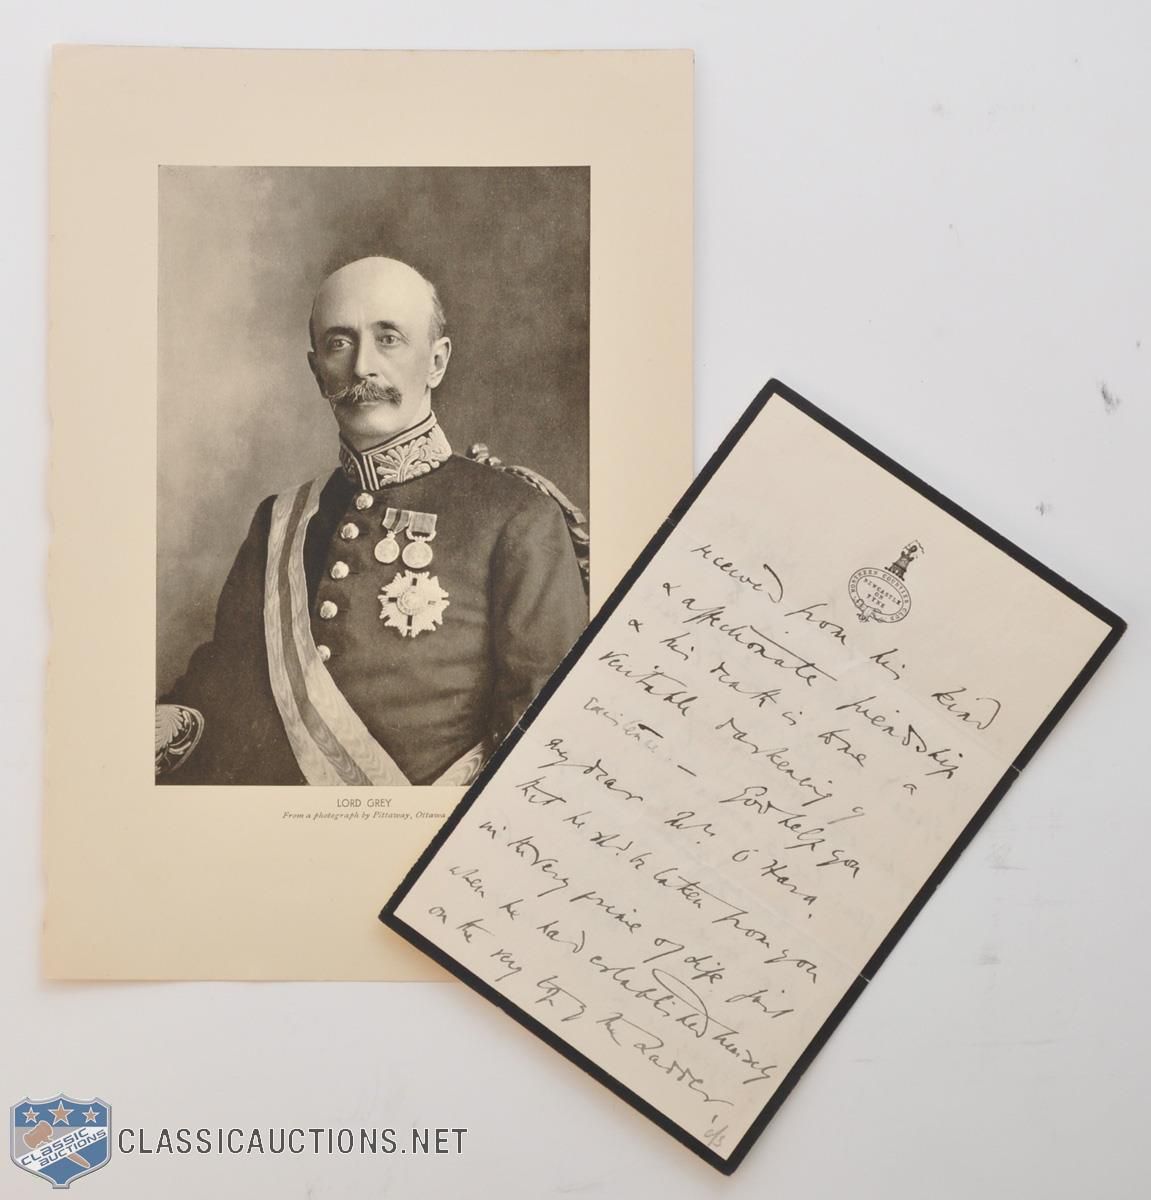 LORD GREY
From a photograph by Pittaway, Ottawa
NORTHERN COUNTIES CLUB
NEWCASTLE
ON
TYNE
received from his kind
& affectionate friendship
& his death is to me a
veritable darkening of
existence — God help you
my dear Mrs O'Hara.
that he shd. be taken from you
in the very prime of life just
when he had established himself
on the very top of the Ladder,
CLASSIC
AUCTIONS
CLASSICAUCTIONS.NET